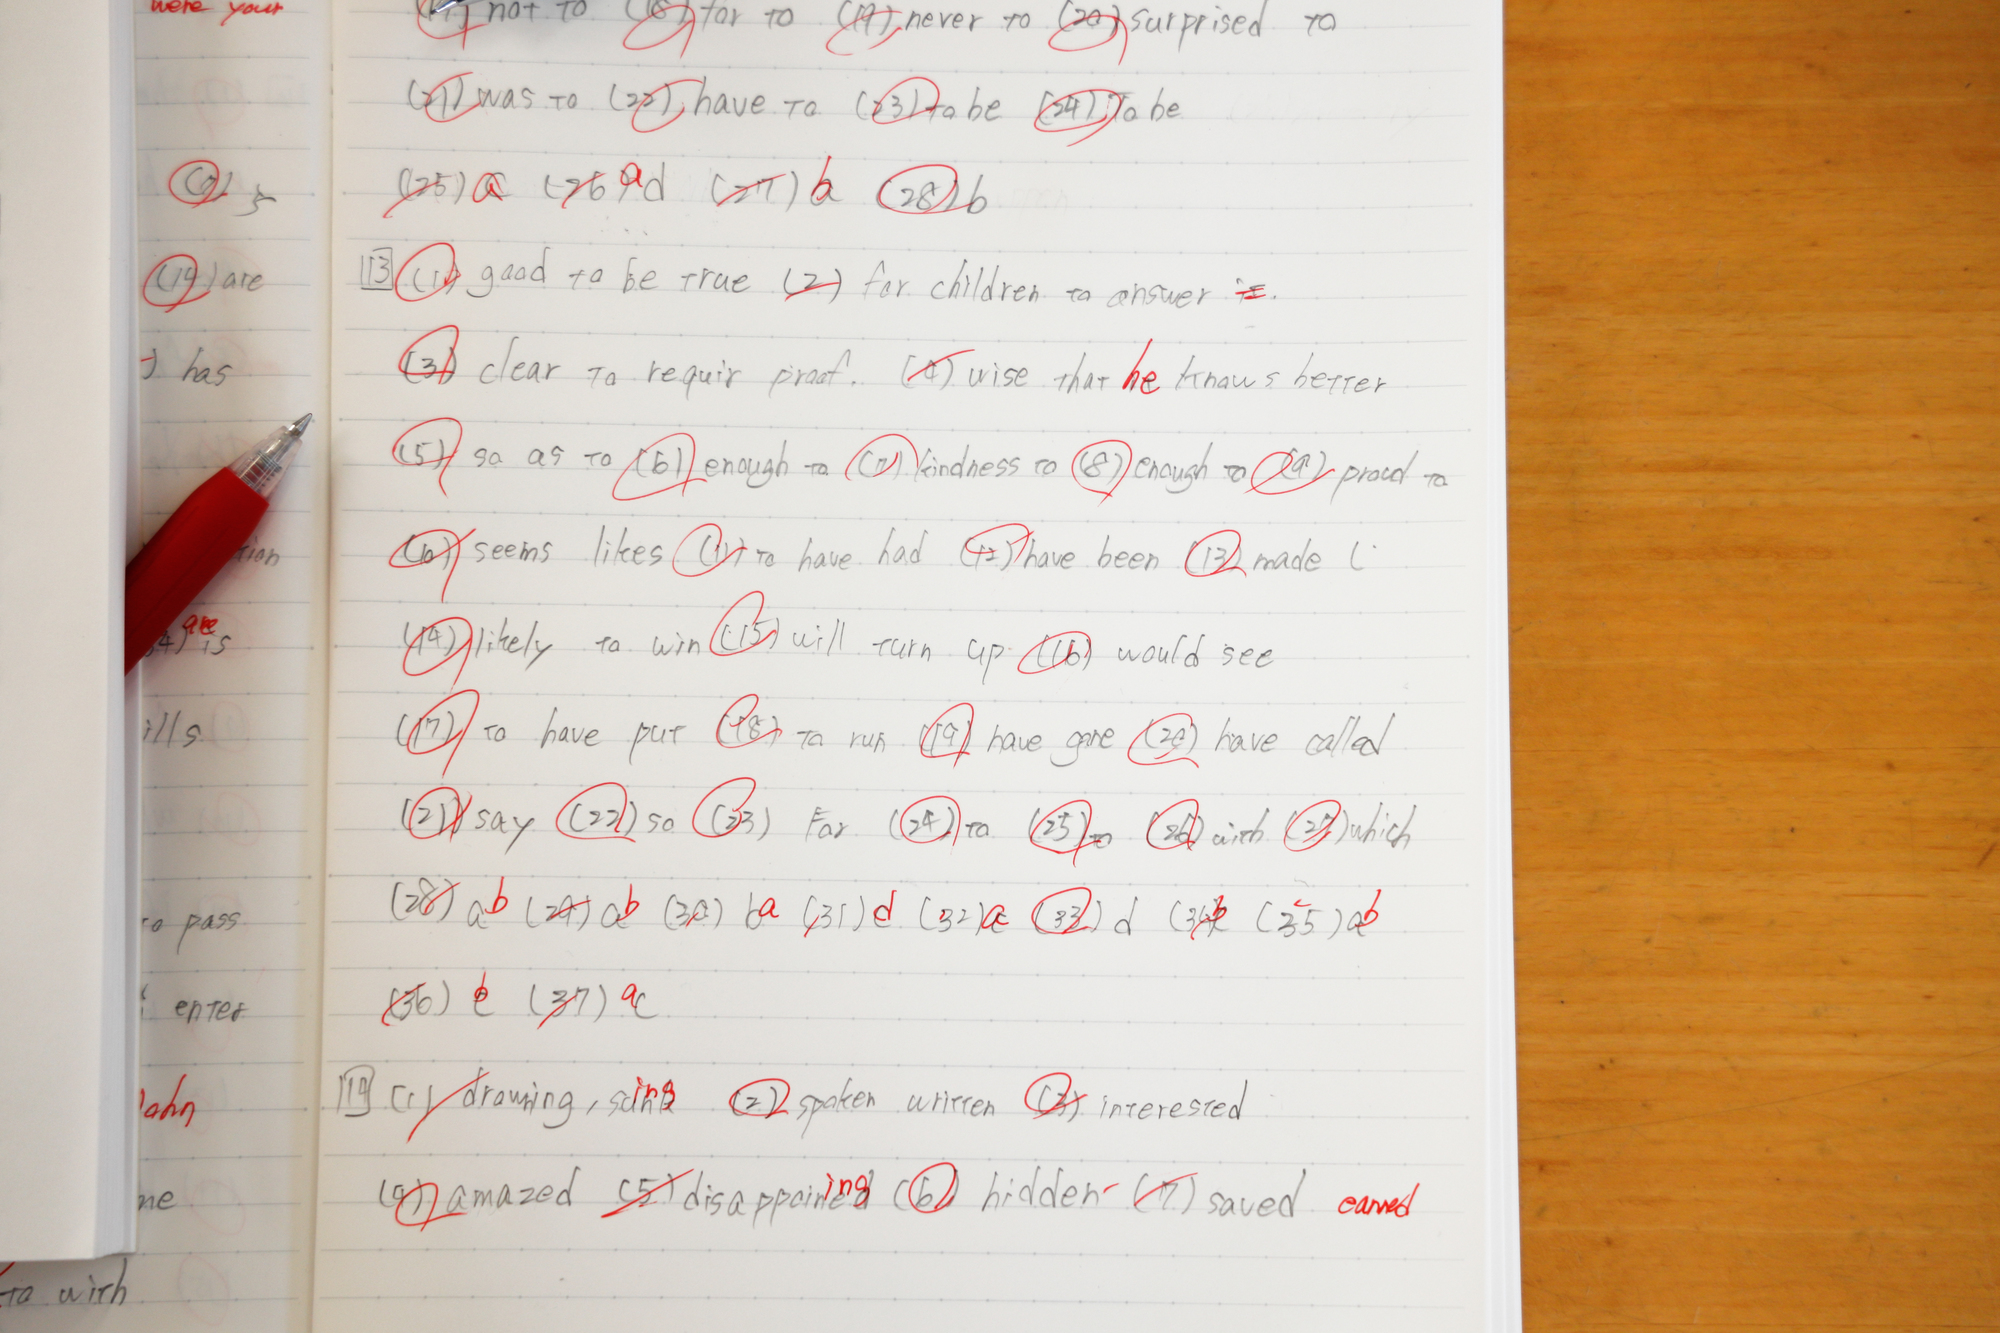 were your
(2) 5
(14) are
) has
tion
(34) is are
ills
to pass
enter
John
me
to with
(17) not to (18) for to (19) never to (20) surprised to
(21) was to (22) have to (23) to be (24) To be
(25) a (26) a d (27) b (28) b
13 (1) good to be true (2) for children to answer it.
(3) clear to requir proof. (4) wise that he knows better
(5) so as to (6) enough to (7) kindness to (8) enough to (9) proud to
(10) seems likes (11) to have had (12) have been (13) made (
(14) likely to win (15) will turn up (16) would see
(17) to have put (18) to run (19) have gone (20) have called
(21) say (22) so (23) For (24) to (25) to (26) with (27) which
(28) a b (29) a b (30) b a (31) d (32) a (33) d (34) b (35) a b
(36) b (37) a c
14 (1) drawing, ing (2) spoken written (3) interested
(4) amazed (5) disappointed ing (6) hidden (7) saved earned